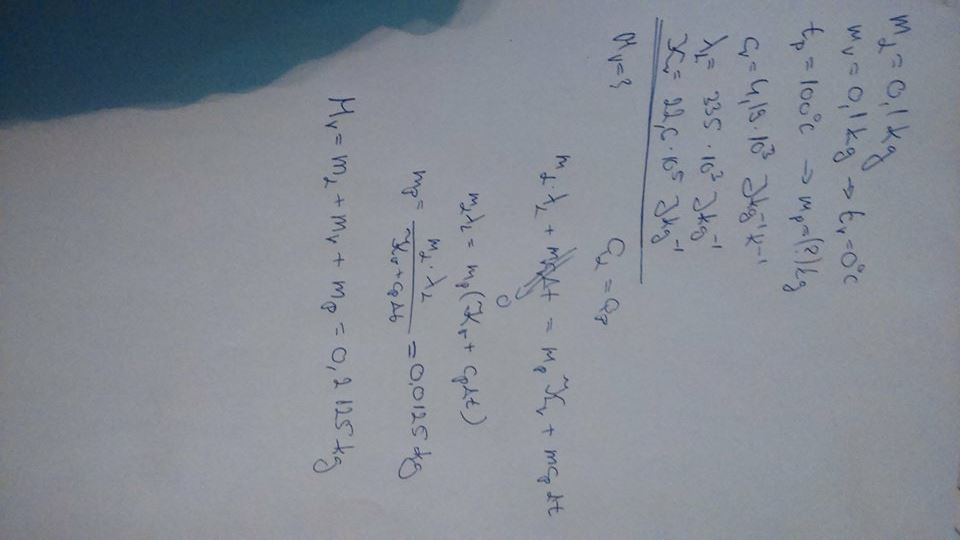 m₂ = 0,1 kg
m_v = 0,1 kg → t_v = 0°C
t_p = 100°C → m_p = (?) kg
c_v = 4,19·10³ J kg⁻¹ K⁻¹
λ₂ = 335·10³ J kg⁻¹
= 22,6·10⁵ J kg⁻¹
M_v = ?
Q₂ = Q_p
m₂·λ₂ + Δt = m_p + mc_pΔt
0
m₂λ₂ = m_p( + c_pΔt)
m_p = m₂·λ₂ / + c_pΔt = 0,0125 kg
M_v = m₂ + m_v + m_p = 0,2125 kg